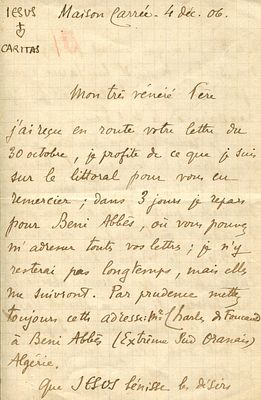 IESUS
CARITAS
Maison Carrée - 4 déc. 06.
Mon très vénéré Père
j'ai reçu en route votre lettre du
30 octobre, je profite de ce que je suis
sur le littoral pour vous en
remercier ; dans 3 jours je repars
pour Beni Abbès, où vous pouvez
m'adresser toutes vos lettres ; je n'y
resterai pas longtemps, mais elles
me suivront. Par prudence mettez
toujours cette adresse : Mr Charles de Foucauld
à Beni Abbès (Extrême Sud Oranais)
Algérie.
Que JESUS bénisse les désirs